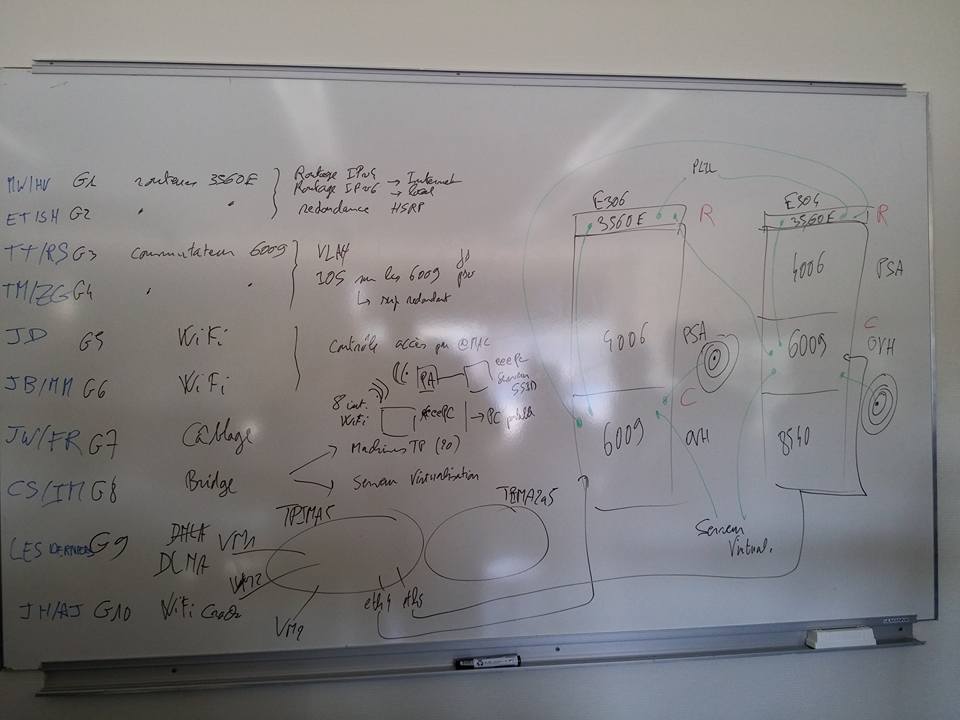 MW/HV G1 routeurs 3560E
Routage IPv4 → Internet
Routage IPv6 → local
ET/SH G2 " "
redondance HSRP
TT/RS G3 commutateur 6009
VLAN
TM/ZG G4 " "
IOS sur les 6009
↳ sup redondant
JD G5 WiFi
Contrôle accès par @MAC
PA
eeePC
Serveur
SSID
JB/MM G6 WiFi
8 int.
WiFi
eeePC → PC portable
JW/FR G7 Câblage
Machines TP (20)
CS/IM G8 Bridge
Serveur Virtualisation
LES DERNIERS G9
VM1
VM2
VM2
TPIMA5
eth4 eth5
JH/AJ G10 WiFi
E306
3560E
R
4006
PSA
C
6009
OVH
E304
3560E
R
4006
PSA
C
6009
OVH
8540
Serveur
Virtual.